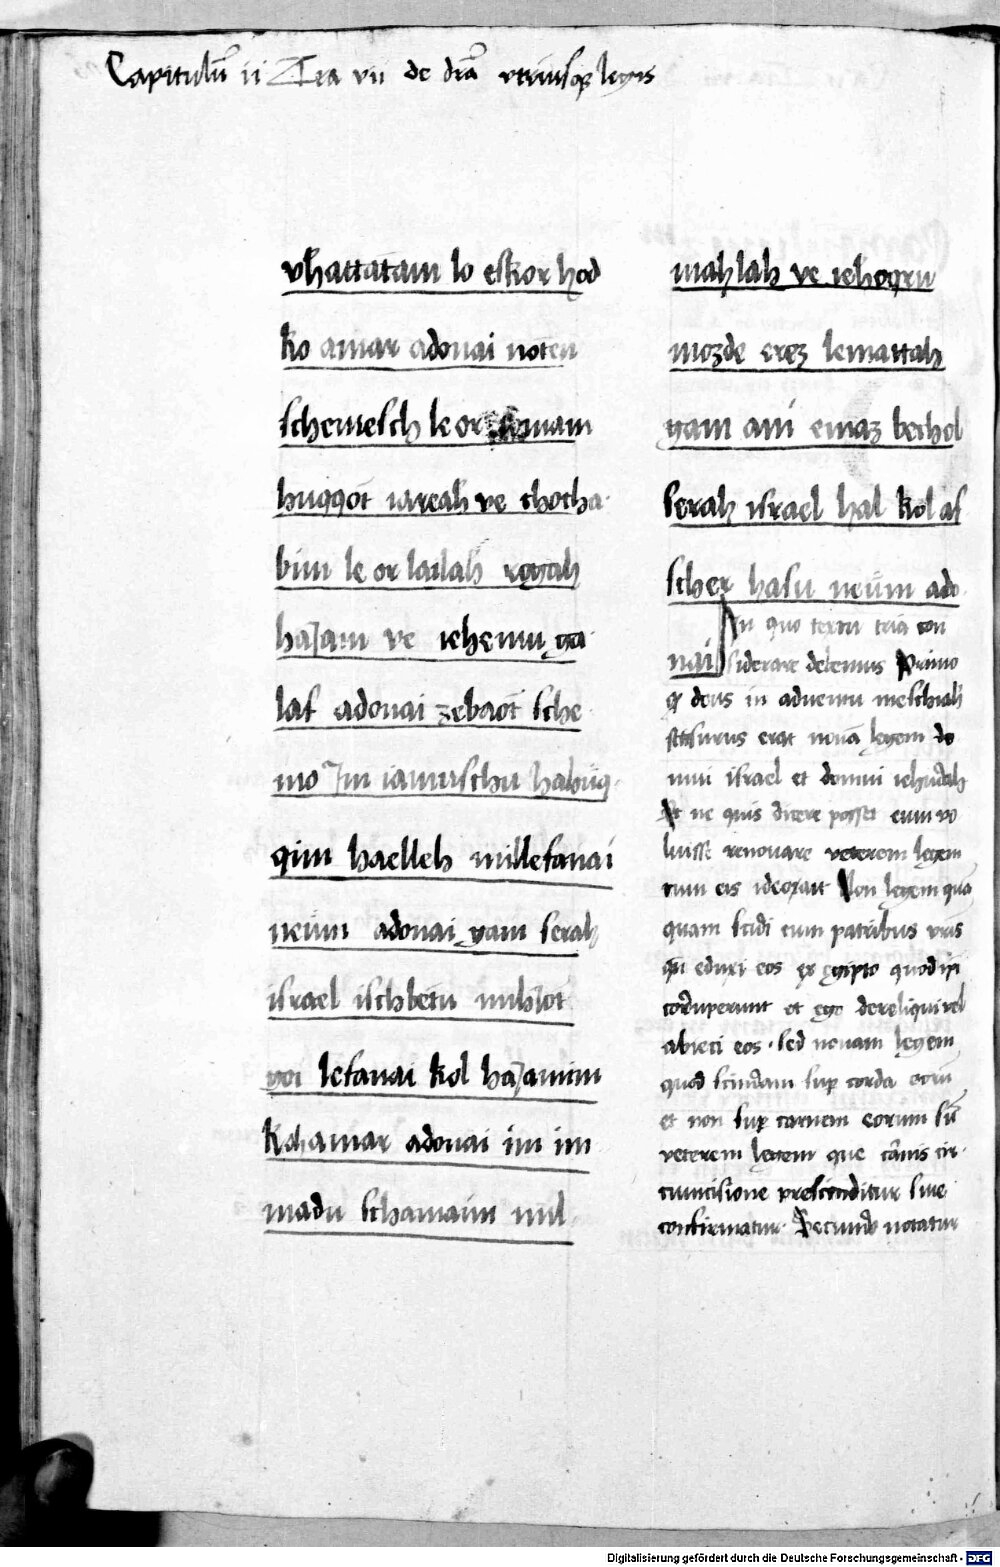 Capitulū ii Tra vii de dr̄a vtriusq̄ legis
vhattatam lo eskor hod
ko amar adonai noten
schemesch le or iomam
huqqōt iareah ve chocha
bim le or lailah rogah
haiam ve iehemu ga
laf adonai zebaōt sche
mo im iamuschu habuq
qim haelleh millefanai
neūm adonai gam serah
israel ischbetu mihiot
goi lefanai kol haiamim
Kohamar adonai im im
madu schamaim mil
mahlah ve iehoqru
mozde erez lemattah
gam ani emaz bechol
serah israel hal kol as
scher hasu neūm ado
nai
In quo textu tria con
siderare debemus Primo
q̄ deus in aduentu meschiah
scissurus erat nouā legem do
mui israel et domui iehudah
Et ne quis dicere posset eum vo
luisse renouare veterem legem
cum eis ideo ait Non legem quā
quam scidi cum patribus vr̄is
qn̄ eduxi eos ex egipto quod ip̄i
corruperunt et ego dereliqui vel
abieci eos · sed nouam legem
quod scindam sup̄ corda eorū
et non sup̄ carnem eorum sū
veterem legem que carnis cir
cumcisione prescinditur siue
confirmatur · Secundo notatur
Digitalisierung gefördert durch die Deutsche Forschungsgemeinschaft - DFG